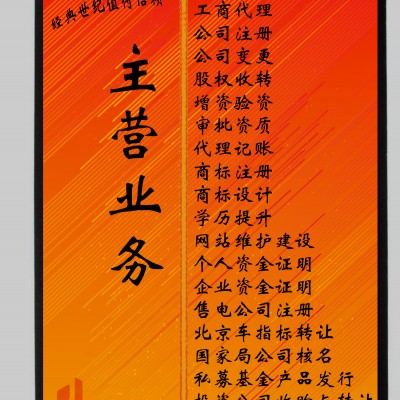 经典世纪值得信赖
主营业务
工商代理
公司注册
公司变更
股权收转
增资验资
审批资质
代理记账
商标注册
商标设计
学历提升
网站维护建设
个人资金证明
企业资金证明
售电公司注册
北京车指标转让
国家局公司核名
私募基金产品发行
投资公司收购与转让